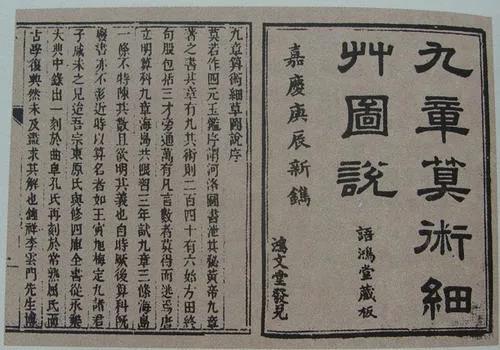 九章算術細
艸圖說
嘉慶庚辰新鐫
語鴻堂藏板
鴻文堂發兌
九章算術細草圖說序
莫若作四元玉鑑序謂河洛圖書泄其秘黃帝九章
著之書其章有九其術則二百四十有六始方田終
句股包括三才旁通萬有凡言數者莫得而逃焉唐
立明算科九章海島共限習三年試九章三條海島
一條不特陳其數且欲明其義也自時厥後算科既
廢書亦不彰近時以算名者如王寅旭梅定九諸君
子咸未之見近吾宗東原氏與修四庫全書從永樂
大典中錄出一刻於曲阜孔氏再刻於常熟屈氏而
古學復興然未及盡求其解也鍾祥李雲門先生博